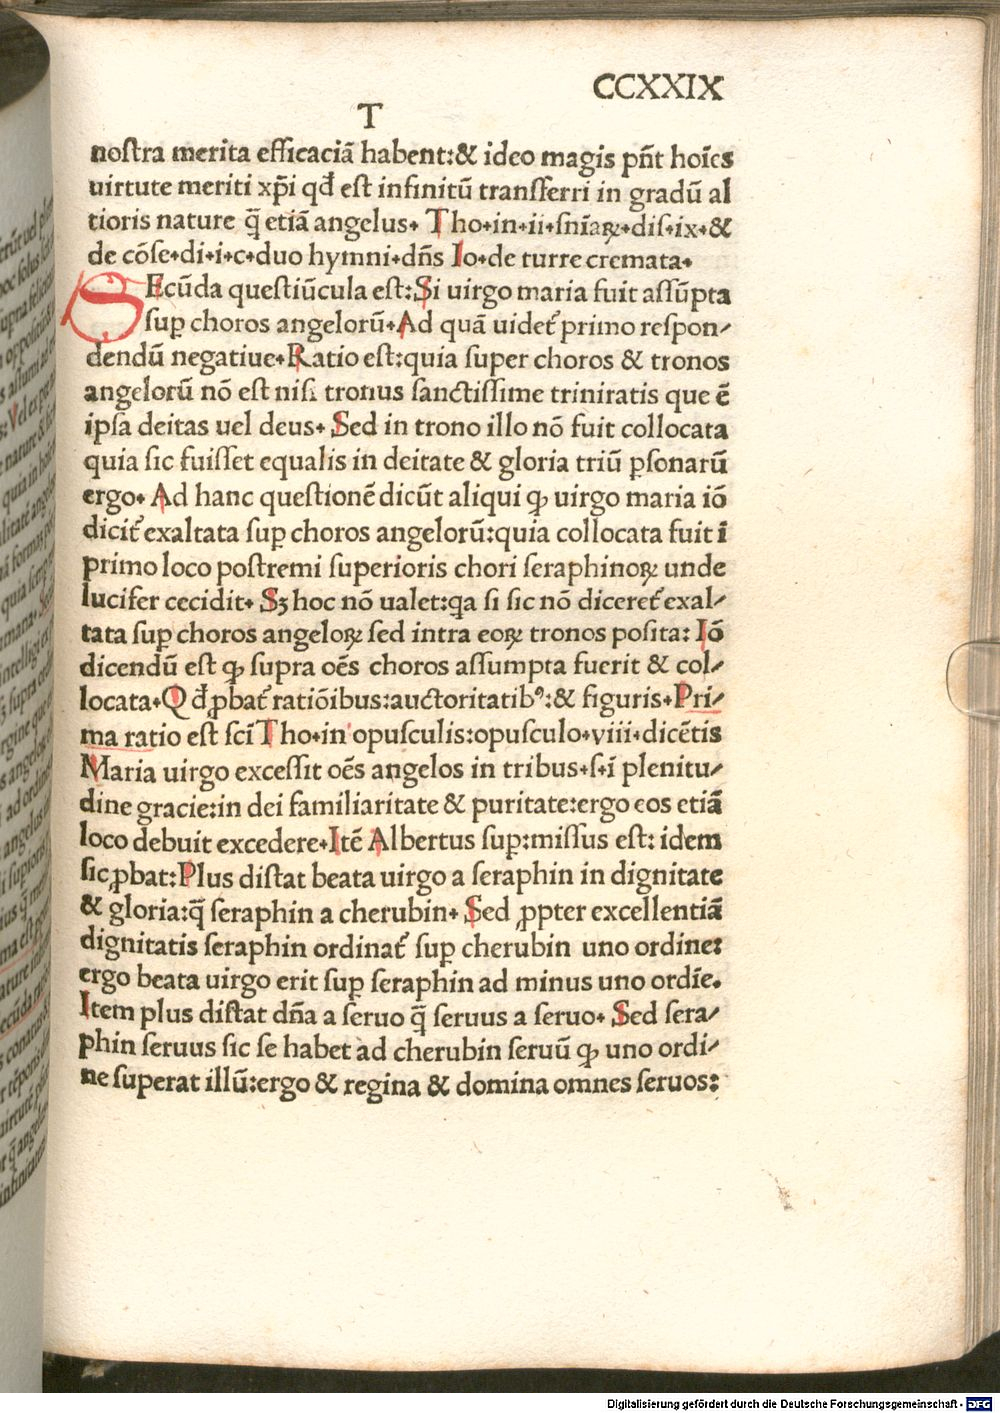 CCXXIX
T
noſtra merita efficaciā habent:& ideo magis pn̄t hoīes
uirtute meriti xp̄i qđ eſt infinitū tranſferri in gradū al
tioris nature q̄ etiā angelus. Tho.in.ii.ſniaꝝ.diſ.ix.&
de cōſe.di.i.c.duo hymni.dn̄s Io.de turre cremata.
SEcūda queſtiūcula eſt:Si uirgo maria fuit aſſūpta
ſuꝑ choros angelorū.Ad quā uidet᷑ primo reſpon/
dendū negatiue.Ratio eſt:quia ſuper choros & tronos
angelorū nō eſt niſi tronus ſanctiſſime triniratis que ē
ipſa deitas uel deus. Sed in trono illo nō fuit collocata
quia ſic fuiſſet equalis in deitate & gloria triū ꝑſonarū
ergo. Ad hanc queſtionē dicūt aliqui ꝙ uirgo maria iō
dicit᷑ exaltata ſuꝑ choros angelorū:quia collocata fuit ī
primo loco poſtremi ſuperioris chori ſeraphinoꝝ unde
lucifer cecidit. Sꝫ hoc nō ualet:qa ſi ſic nō diceret᷑ exal/
tata ſuꝑ choros angeloꝝ ſed intra eoꝝ tronos poſita: Iō
dicendū eſt ꝙ ſupra oēs choros aſſumpta fuerit & col/
locata.Qđ ꝓbat᷑ ratiōibus:auctoritatibꝰ:& figuris.Pri/
ma ratio eſt ſcī Tho.in opuſculis:opuſculo.viii.dicētis
Maria uirgo exceſſit oēs angelos in tribus.ſ.ī plenitu/
dine gracie:in dei familiaritate & puritate:ergo eos etiā
loco debuit excedere.Itē Albertus ſuꝑ:miſſus eſt: idem
ſic ꝓbat:Plus diſtat beata uirgo a ſeraphin in dignitate
& gloria:q̄ ſeraphin a cherubin. Sed ꝓpter excellentiā
dignitatis ſeraphin ordinat᷑ ſuꝑ cherubin uno ordine:
ergo beata uirgo erit ſuꝑ ſeraphin ad minus uno ordīe.
Item plus diſtat dn̄a a ſeruo q̄ ſeruus a ſeruo. Sed ſera/
phin ſeruus ſic ſe habet ad cherubin ſeruū ꝙ uno ordi/
ne ſuperat illū:ergo & regina & domina omnes ſeruos:
Digitalisierung gefördert durch die Deutsche Forschungsgemeinschaft - DFG